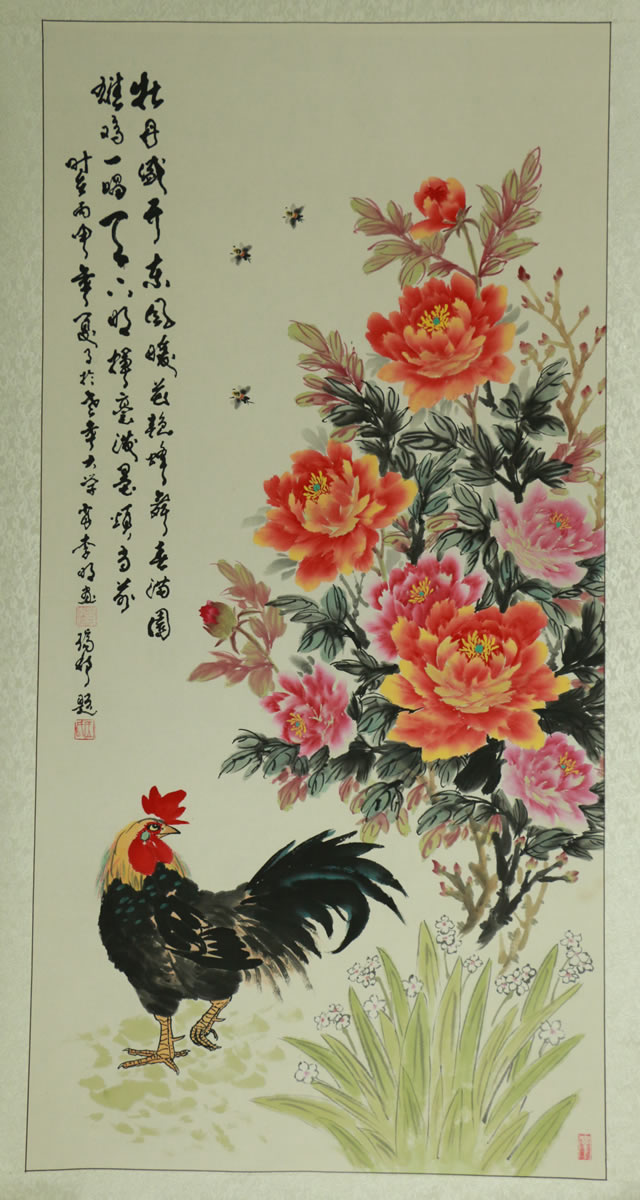 牡丹盛开东风暖花艳蜂舞春满园
雄鸡一唱天下明挥毫泼墨颂当前
时在丙申年夏月于老年大学 李明画
题